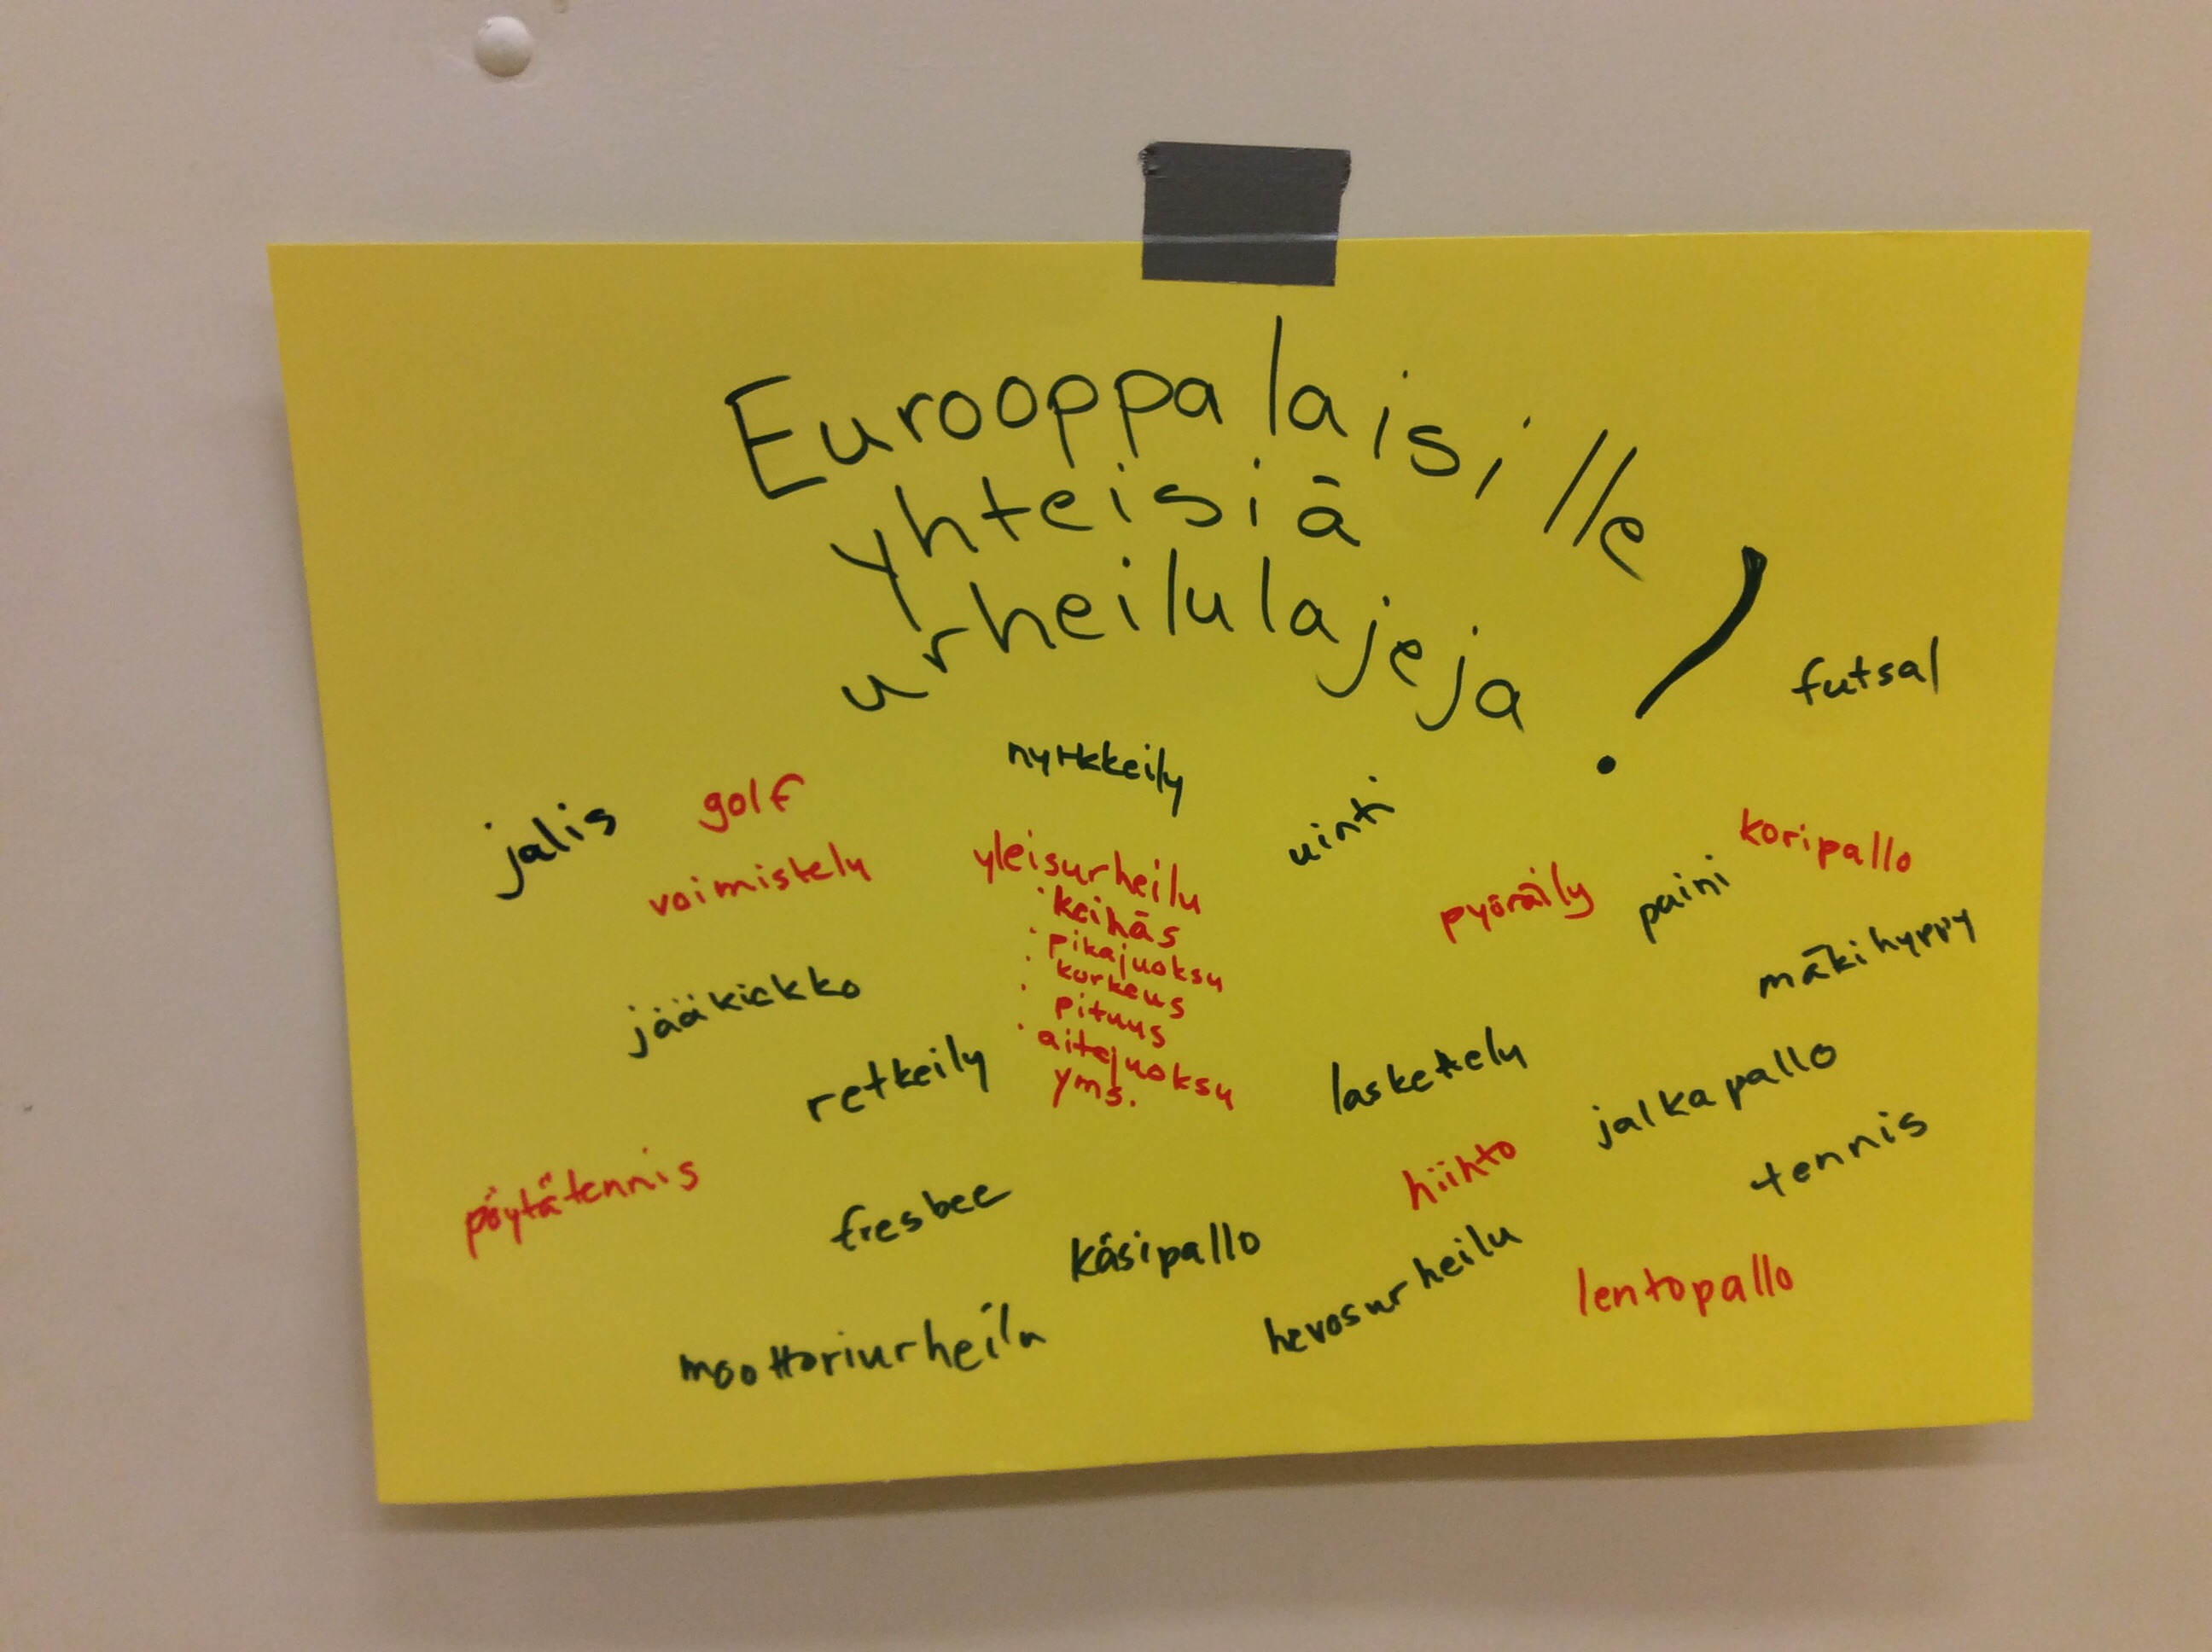 Eurooppalaisille
yhteisiä
urheilulajeja!
futsal
nyrkkeily
jalis
golf
uinti
koripallo
voimistelu
yleisurheilu
· keihäs
· pikajuoksu
· korkeus
· pituus
· aitajuoksu
yms.
pyöräily
paini
mäkihyppy
jääkiekko
retkeily
laskettelu
jalkapallo
tennis
pöytätennis
fresbee
hiihto
käsipallo
hevosurheilu
lentopallo
moottoriurheilu